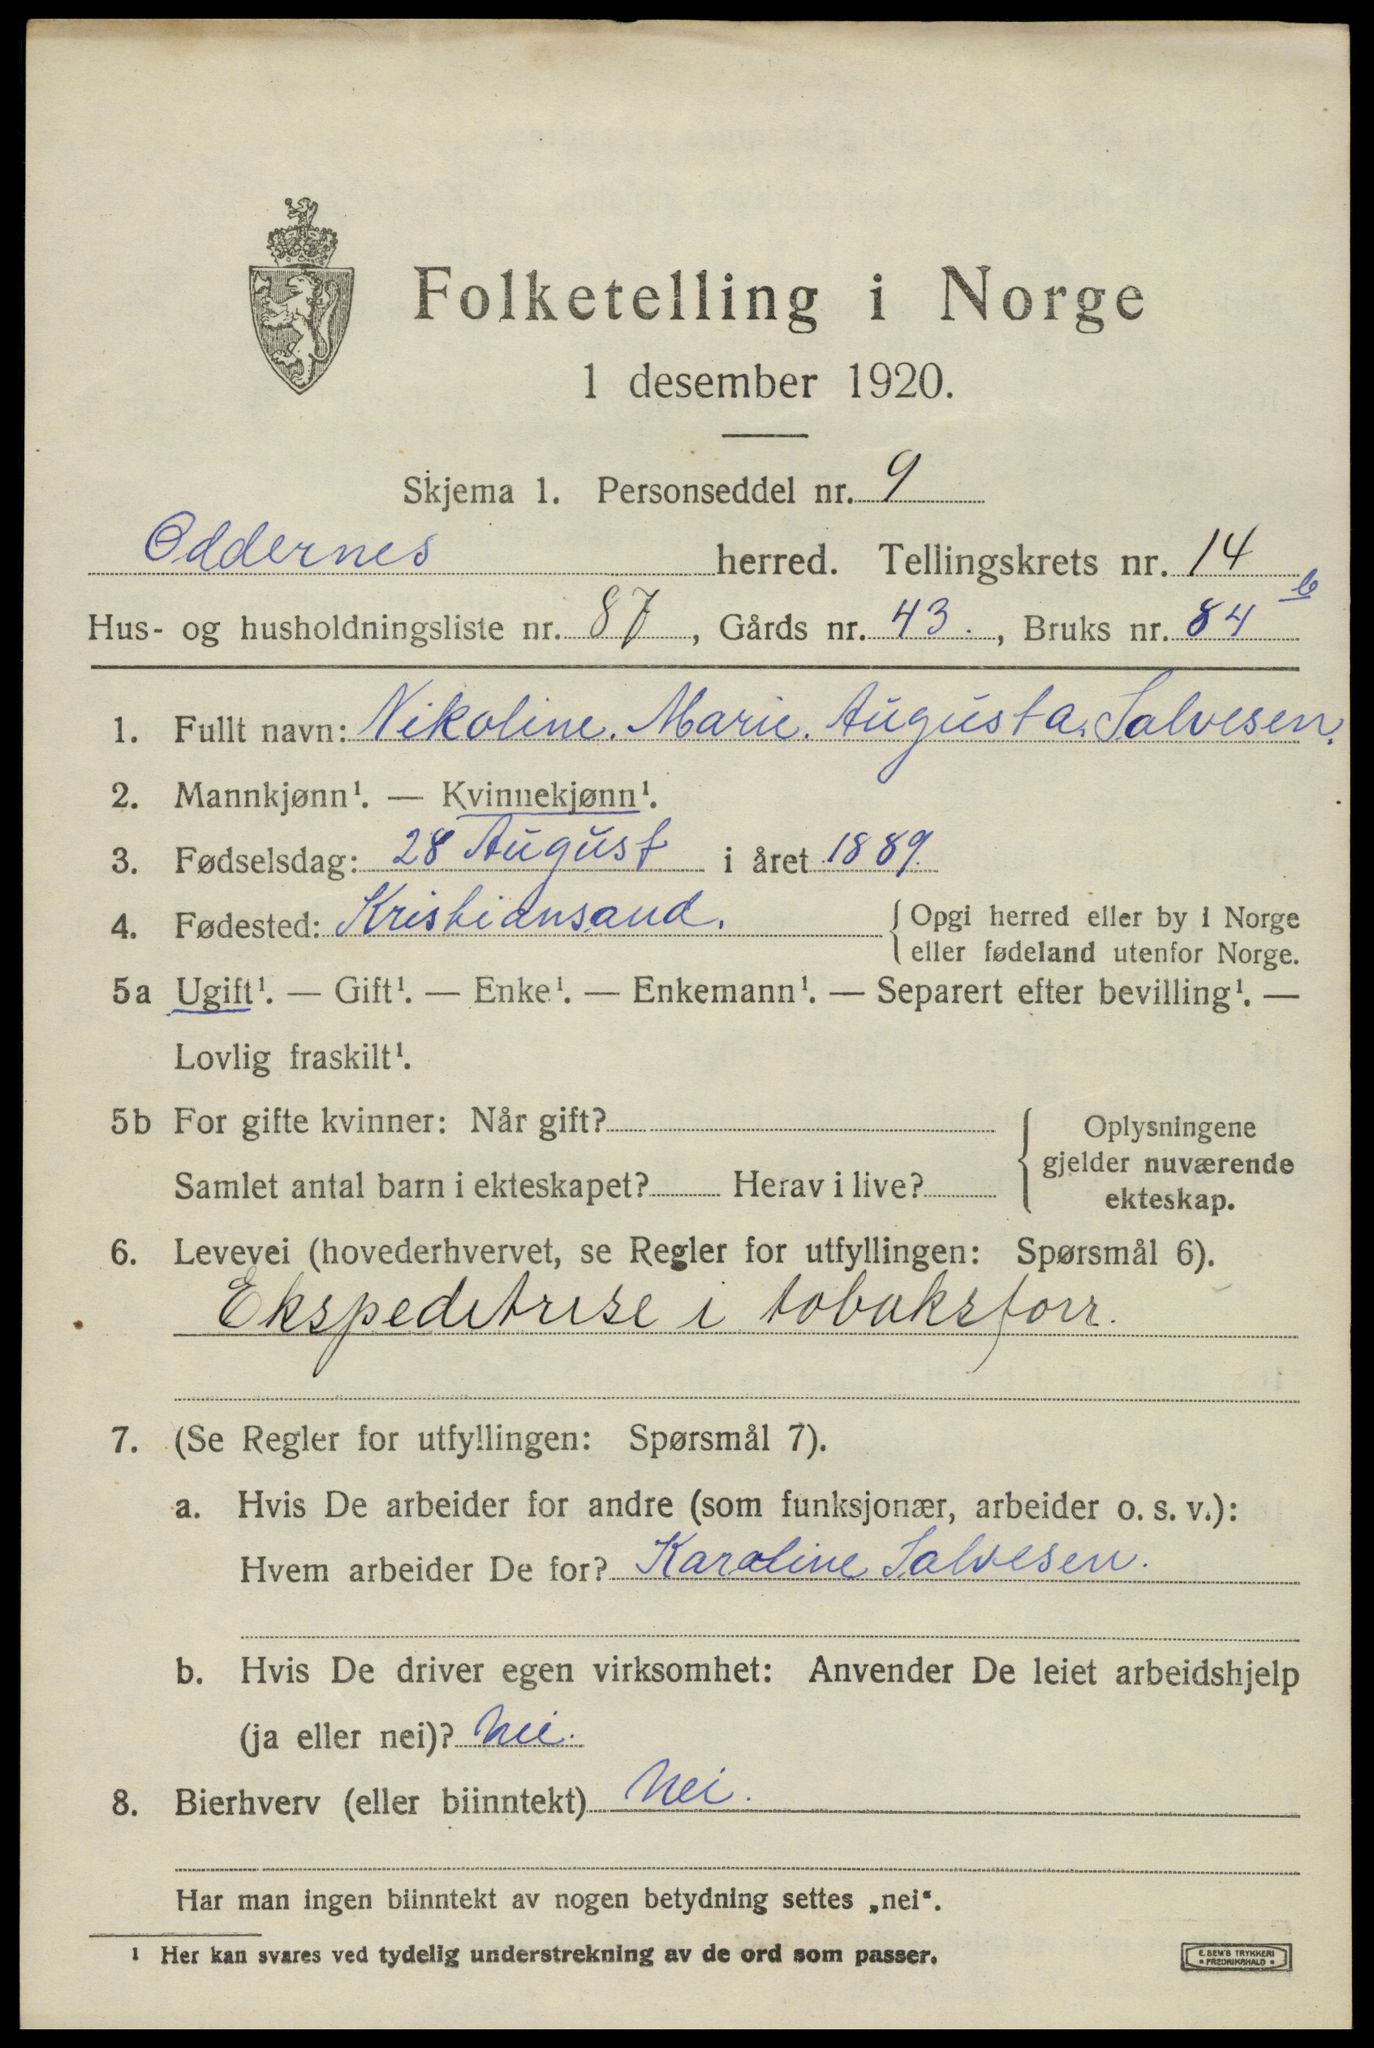 Folketelling i Norge
1 desember 1920.
Skjema 1. Personseddel nr. 9
Oddernes herred. Tellingskrets nr. 14
Hus- og husholdningsliste nr. 87, Gårds nr. 43., Bruks nr. 84 b
1. Fullt navn: Nikoline. Marie. Augusta. Salvesen.
2. Mannkjønn¹. — Kvinnekjønn¹.
3. Fødselsdag: 28 August i året 1889.
4. Fødested: Kristiansand. { Opgi herred eller by i Norge
eller fødeland utenfor Norge.
5a Ugift¹. — Gift¹. — Enke¹. — Enkemann¹. — Separert efter bevilling¹. —
Lovlig fraskilt¹.
5b For gifte kvinner: Når gift? { Oplysningene
gjelder nuværende
Samlet antal barn i ekteskapet? Herav i live?
ekteskap.
6. Levevei (hovederhvervet, se Regler for utfyllingen: Spørsmål 6).
Ekspeditrise i tobaksforr.
7. (Se Regler for utfyllingen: Spørsmål 7).
a. Hvis De arbeider for andre (som funksjonær, arbeider o. s. v.):
Hvem arbeider De for? Karoline Salvesen.
b. Hvis De driver egen virksomhet: Anvender De leiet arbeidshjelp
(ja eller nei)? Nei.
8. Bierhverv (eller biinntekt) Nei.
Har man ingen biinntekt av nogen betydning settes „nei“.
¹ Her kan svares ved tydelig understrekning av de ord som passer.
E. SEM'S TRYKKERI
* FREDRIKSHALD *